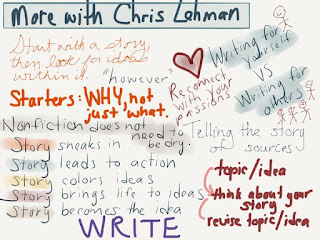 More with Chris Lehman
Start with a story,
then look for ideas
within it.
"however"
Starters: WHY, not
just what.
Reconnect
with your
passions
Writing for
yourself
VS
Writing for
others
Nonfiction does not need to
be dry.
Telling the story
of sources
Story sneaks in
Story leads to action
Story colors ideas
Story brings life to ideas
Story becomes the idea
topic/idea
think about your
story
revise topic/idea
WRITE